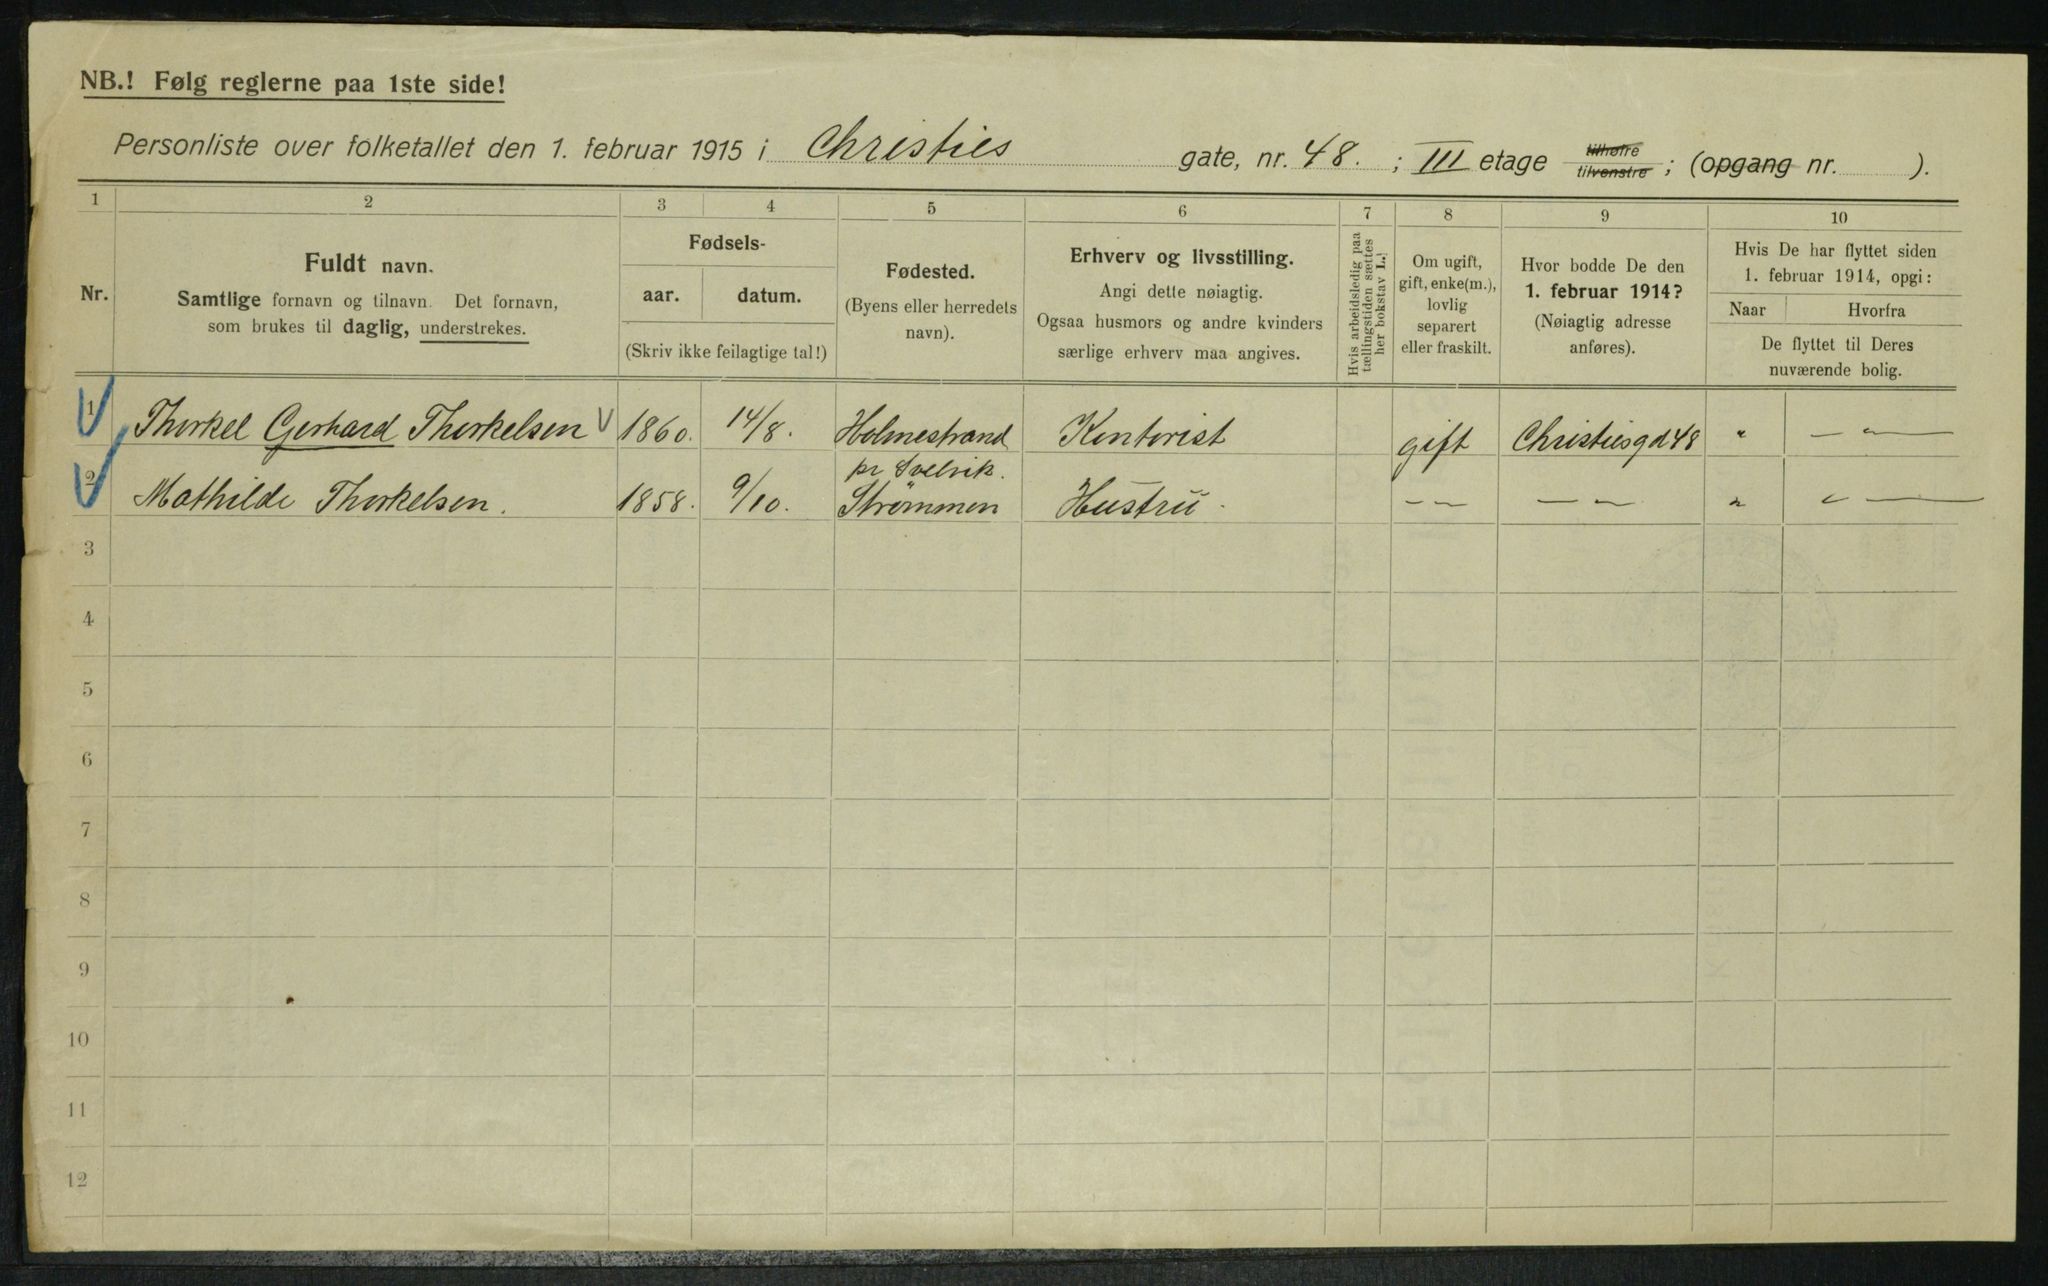 NB.! Følg reglerne paa 1ste side!
Personliste over folketallet den 1. februar 1915 i Christies gate, nr. 48. ; III etage tilhøire tilvenstre ; (opgang nr. ).
1 2 3 4 5 6 7 8 9 10
Nr.
Fuldt navn.
Samtlige fornavn og tilnavn. Det fornavn,
som brukes til daglig, understrekes.
Fødsels-
aar. datum.
(Skriv ikke feilagtige tal!)
Fødested.
(Byens eller herredets
navn).
Erhverv og livsstilling.
Angi dette nøiagtig.
Ogsaa husmors og andre kvinders
særlige erhverv maa angives.
Hvis arbeidsledig paa
tællingstiden sættes
her bokstav L.]
Om ugift,
gift, enke(m.),
lovlig
separert
eller fraskilt.
Hvor bodde De den
1. februar 1914?
(Nøiagtig adresse
anføres).
Hvis De har flyttet siden
1. februar 1914, opgi:
Naar Hvorfra
De flyttet til Deres
nuværende bolig.
1 Thorkel Gerhard Thorkelsen V 1860. 14/8. Holmestrand Kontorist gift Christiesgd 48 " — " —
pr Svelvik.
2 Mathilde Thorkelsen. 1858. 9/10. Strømmen Hustru. — — — " — " " —
3
4
5
6
7
8
9
10
11
12